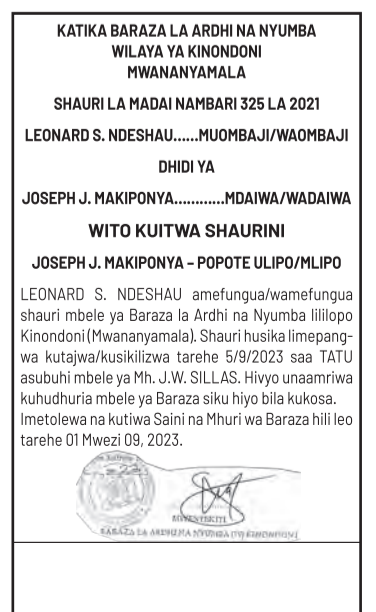 KATIKA BARAZA LA ARDHI NA NYUMBA
WILAYA YA KINONDONI
MWANANYAMALA
SHAURI LA MADAI NAMBARI 325 LA 2021
LEONARD S. NDESHAU......MUOMBAJI/WAOMBAJI
DHIDI YA
JOSEPH J. MAKIPONYA............MDAIWA/WADAIWA
WITO KUITWA SHAURINI
JOSEPH J. MAKIPONYA – POPOTE ULIPO/MLIPO
LEONARD S. NDESHAU amefungua/wamefungua
shauri mbele ya Baraza la Ardhi na Nyumba lililopo
Kinondoni (Mwananyamala). Shauri husika limepang-
wa kutajwa/kusikilizwa tarehe 5/9/2023 saa TATU
asubuhi mbele ya Mh. J.W. SILLAS. Hivyo unaamriwa
kuhudhuria mbele ya Baraza siku hiyo bila kukosa.
Imetolewa na kutiwa Saini na Mhuri wa Baraza hili leo
tarehe 01 Mwezi 09, 2023.
MWENYEKITI
BARAZA LA ARDHI NA NYUMBA (W) KINONDONI